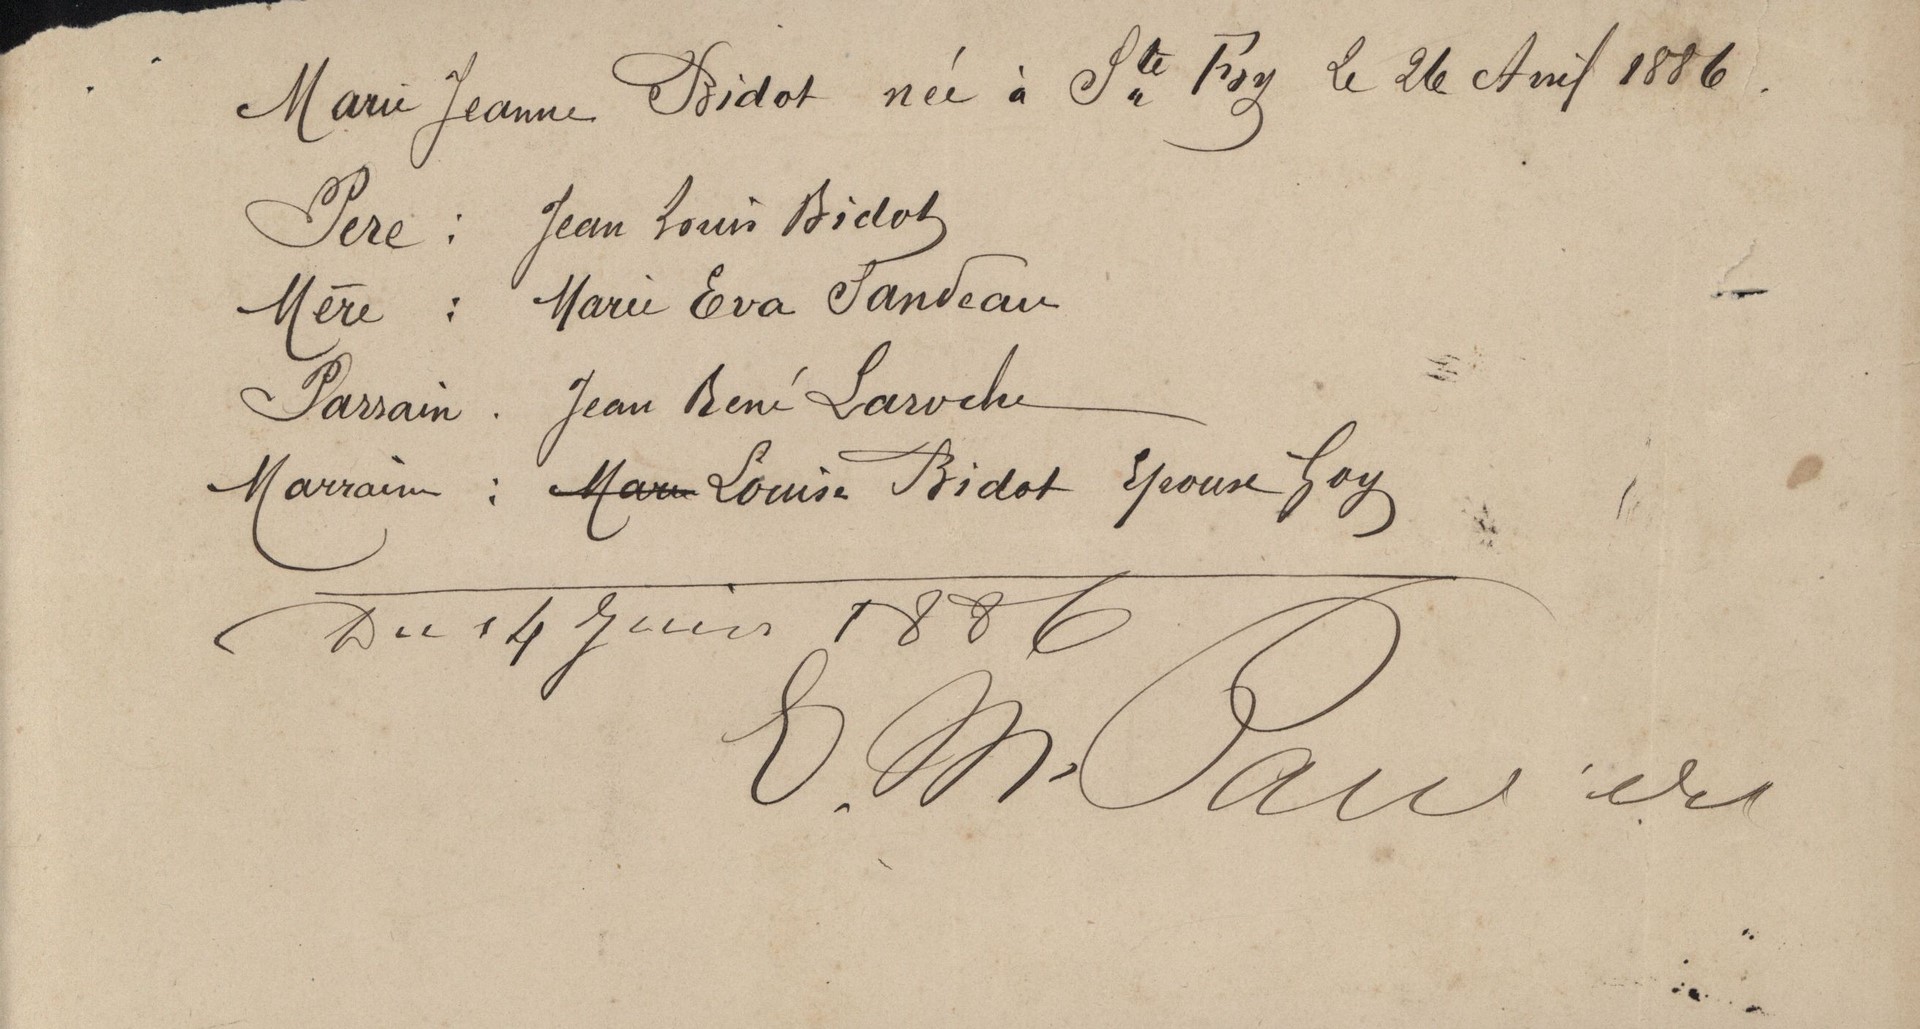 Marie Jeanne Bidot née à Ste Foy Le 26 Avril 1886.
Pere : Jean Louis Bidot
Mère : Marie Eva Sandeau
Parrain . Jean René Laroche
Marraine : Marie Louise Bidot Epouse Goy
Du 14 Juin 1886
E. M.